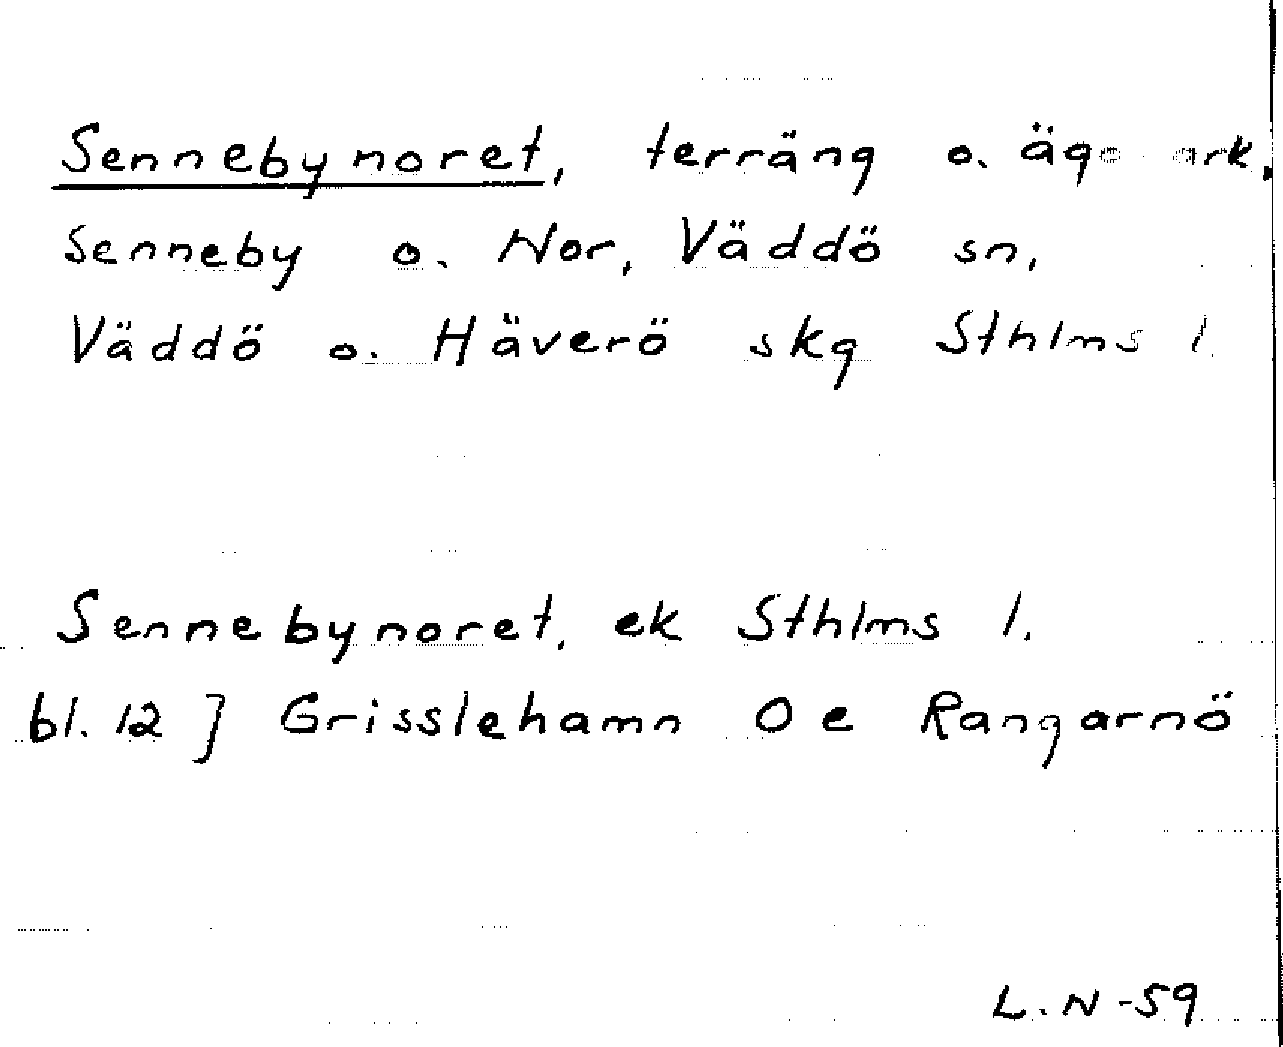 Sennebynoret, terräng o. ägomark,
Senneby o. Nor, Väddö sn,
Väddö o. Häverö skg Sthlms l.
Sennebynoret, ek Sthlms l.
bl. 12 ] Grisslehamn O e Rangarnö
L.N -59